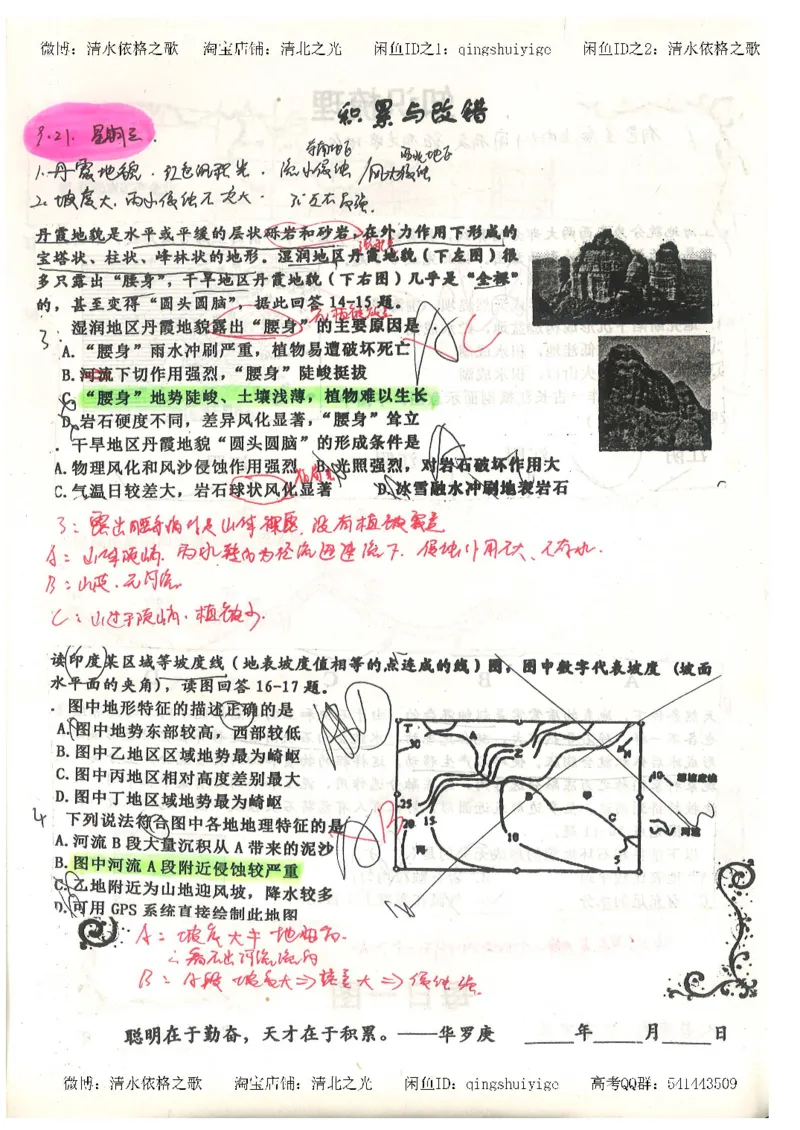 微博：清水依格之歌 淘宝店铺：清北之光 闲鱼ID之1：qingshuiyige 闲鱼ID之2：清水依格之歌
积累与改错
9.21. 星期三.
1.丹霞地貌.红色砂砾光.流水侵蚀/风力侵蚀
2.坡度大.雨水侵蚀不大
丹霞地貌是水平或平缓的层状砾岩和砂岩，在外力作用下形成的
宝塔状、柱状、峰林状的地形。湿润地区丹霞地貌（下左图）很
多只露出“腰身”，干旱地区丹霞地貌（下右图）几乎是“全裸”
的，甚至变得“圆头圆脑”，据此回答 14-15 题。
3. 湿润地区丹霞地貌露出“腰身”的主要原因是 C
A.“腰身”雨水冲刷严重，植物易遭破坏死亡
B.河流下切作用强烈，“腰身”陡峻挺拔
C.“腰身”地势陡峻、土壤浅薄，植物难以生长
D.岩石硬度不同，差异风化显著，“腰身”耸立
. 干旱地区丹霞地貌“圆头圆脑”的形成条件是
A.物理风化和风沙侵蚀作用强烈 B.光照强烈，对岩石破坏作用大
C.气温日较差大，岩石球状风化显著 D.冰雪融水冲刷地表岩石
3：露出腰身的是山体裸露.没有植被覆盖
B：山坡.无河流
C：山过于陡峭.植被少.
读印度某区域等坡度线（地表坡度值相等的点连成的线）图，图中数字代表坡度（坡面
水平面的夹角），读图回答 16-17 题。
. 图中地形特征的描述正确的是
A.图中地势东部较高，西部较低
B.图中乙地区区域地势最为崎岖
C.图中丙地区相对高度差别最大
D.图中丁地区域地势最为崎岖
丁 A 30 乙 25 20 15 丙 B 10 C
10 等坡度线
河流
4 下列说法符合图中各地地理特征的是 B
A.河流 B 段大量沉积从 A 带来的泥沙
B.图中河流 A 段附近侵蚀较严重
C.乙地附近为山地迎风坡，降水较多
D.可用 GPS 系统直接绘制此地图
A：坡度大于
∴看不出河流流向
B：A段 坡度大⇒落差大⇒侵蚀强
聪明在于勤奋，天才在于积累。——华罗庚 ____年____月____日
微博：清水依格之歌 淘宝店铺：清北之光 闲鱼ID：qingshuiyige 高考QQ群：541443509